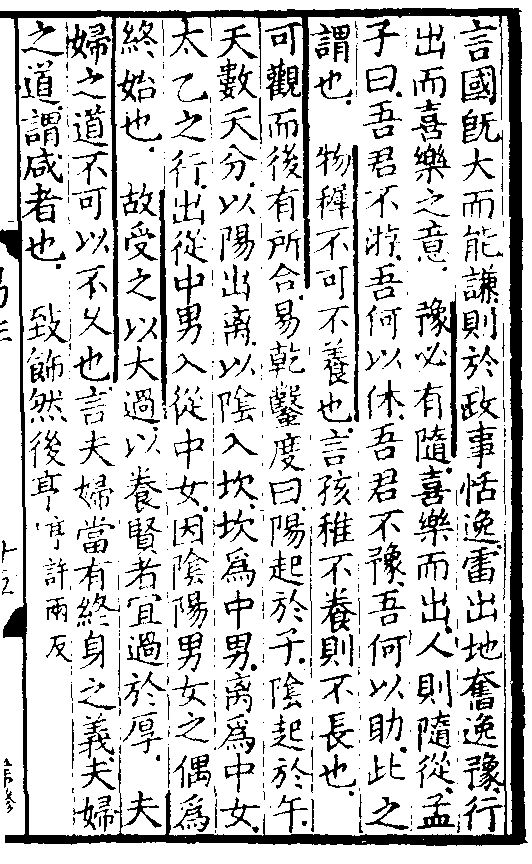 言國旣大而能謙則於政事恬逸雷出地奮逸豫行
出而喜樂之意 豫必有隨喜樂而出人則隨從孟
子曰吾君不游吾何以休吾君不豫吾何以助此之
謂也 物稺不可不養也言孩稚不養則不長也
可觀而後有所合易乾鑿度曰陽起於子陰起於午
天數天分以陽出离以陰入坎坎爲中男离爲中女
太乙之行出從中男入從中女因陰陽男女之偶爲
終始也 故受之以大過以養賢者宜過於厚 夫
婦之道不可以不久也言夫婦當有終身之義夫婦
之道謂咸者也 致飾然後亨 許兩反